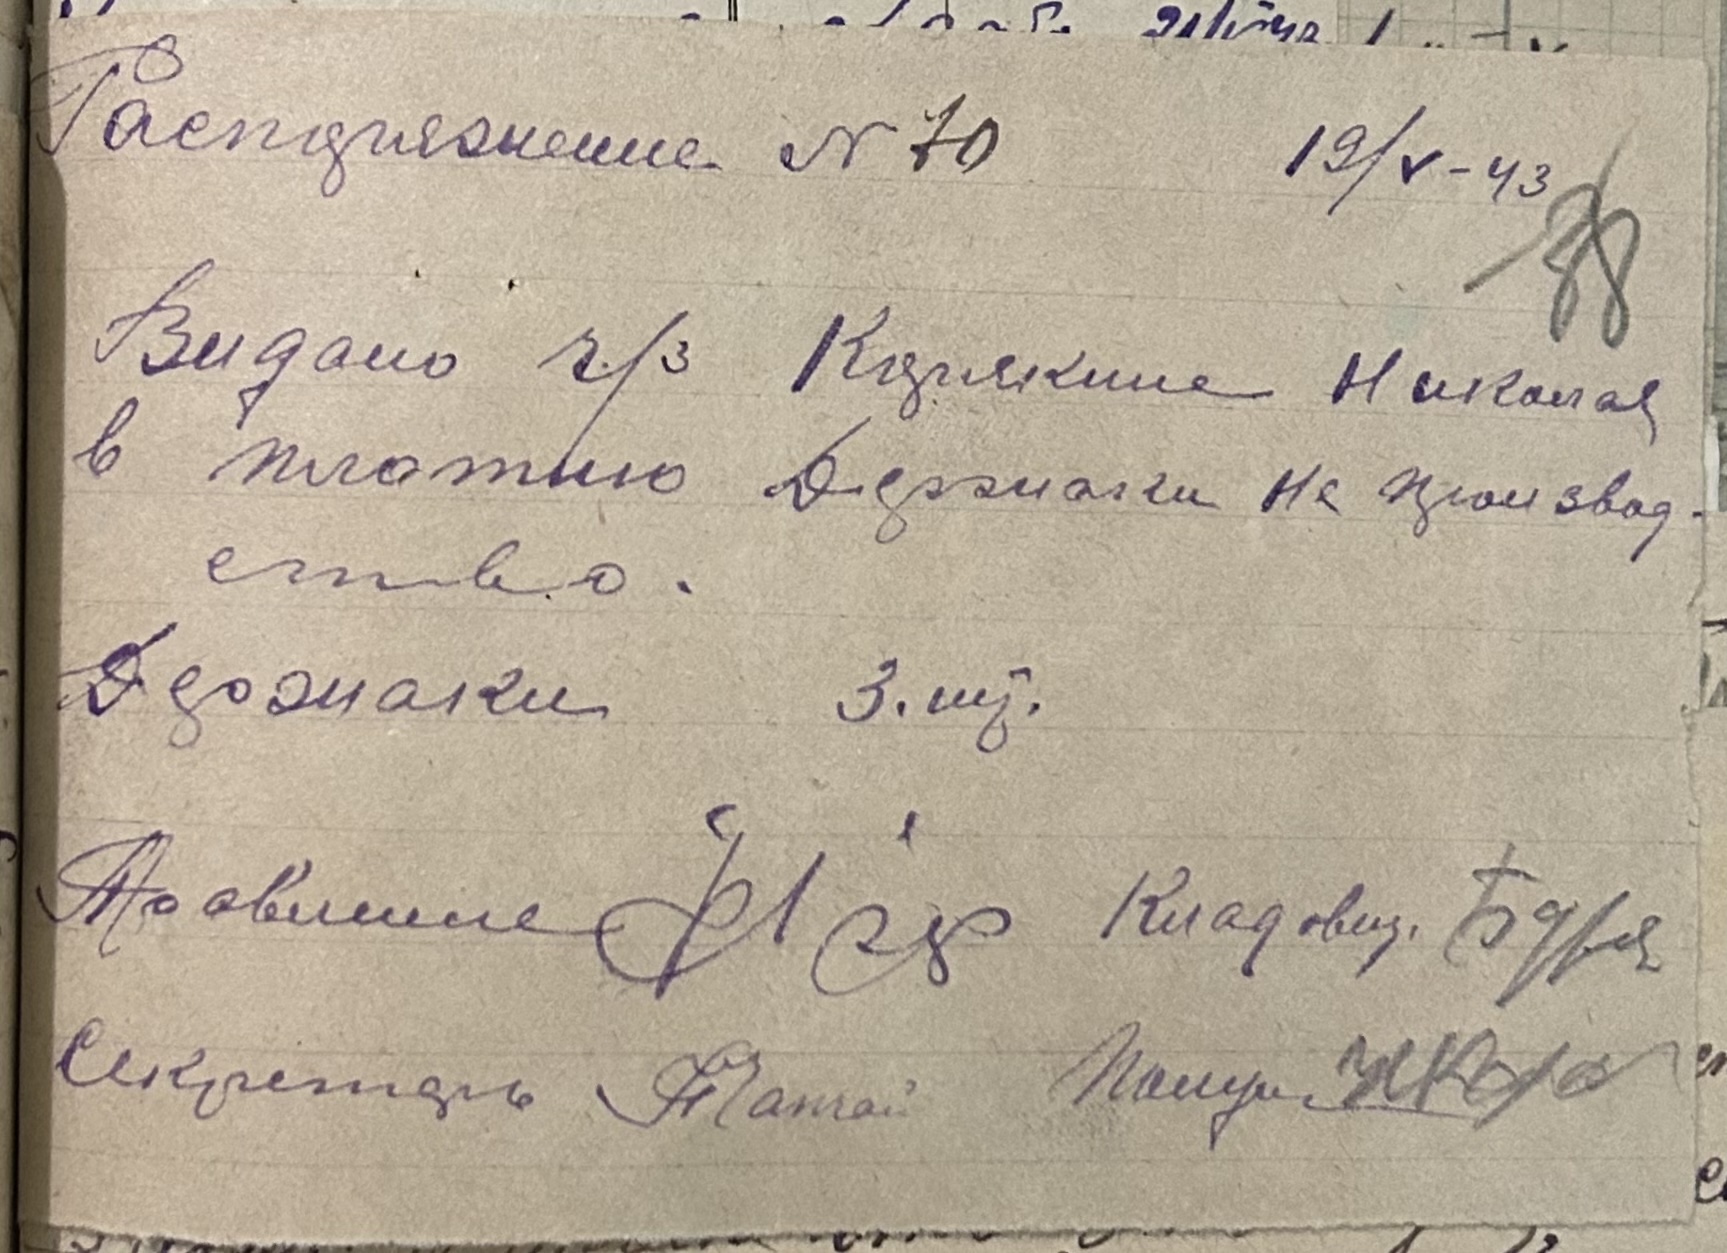 Распоряжение N 70 19/V-43
38
Видано ч/з Корякина Николая
в платию Держаки на производ-
ство.
Держаки 3. шт.
Правление Кладовщ.
Секретарь Получ.